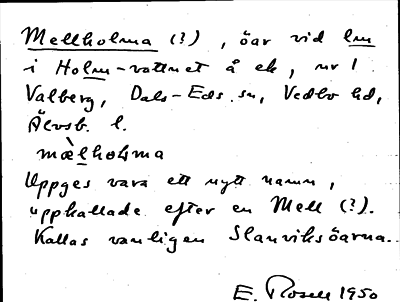 Mellholma (?), öar vid lm
i Holm-vattnet å ek, nr 1
Valberg, Dals-Eds sn, Vedbo hd,
Älvsb. l.
mæ̀lholma
Uppges vara ett nytt namn,
uppkallade efter en Mell (?).
Kallas vanligen Slanviksöarna.
E. Rosell 1950